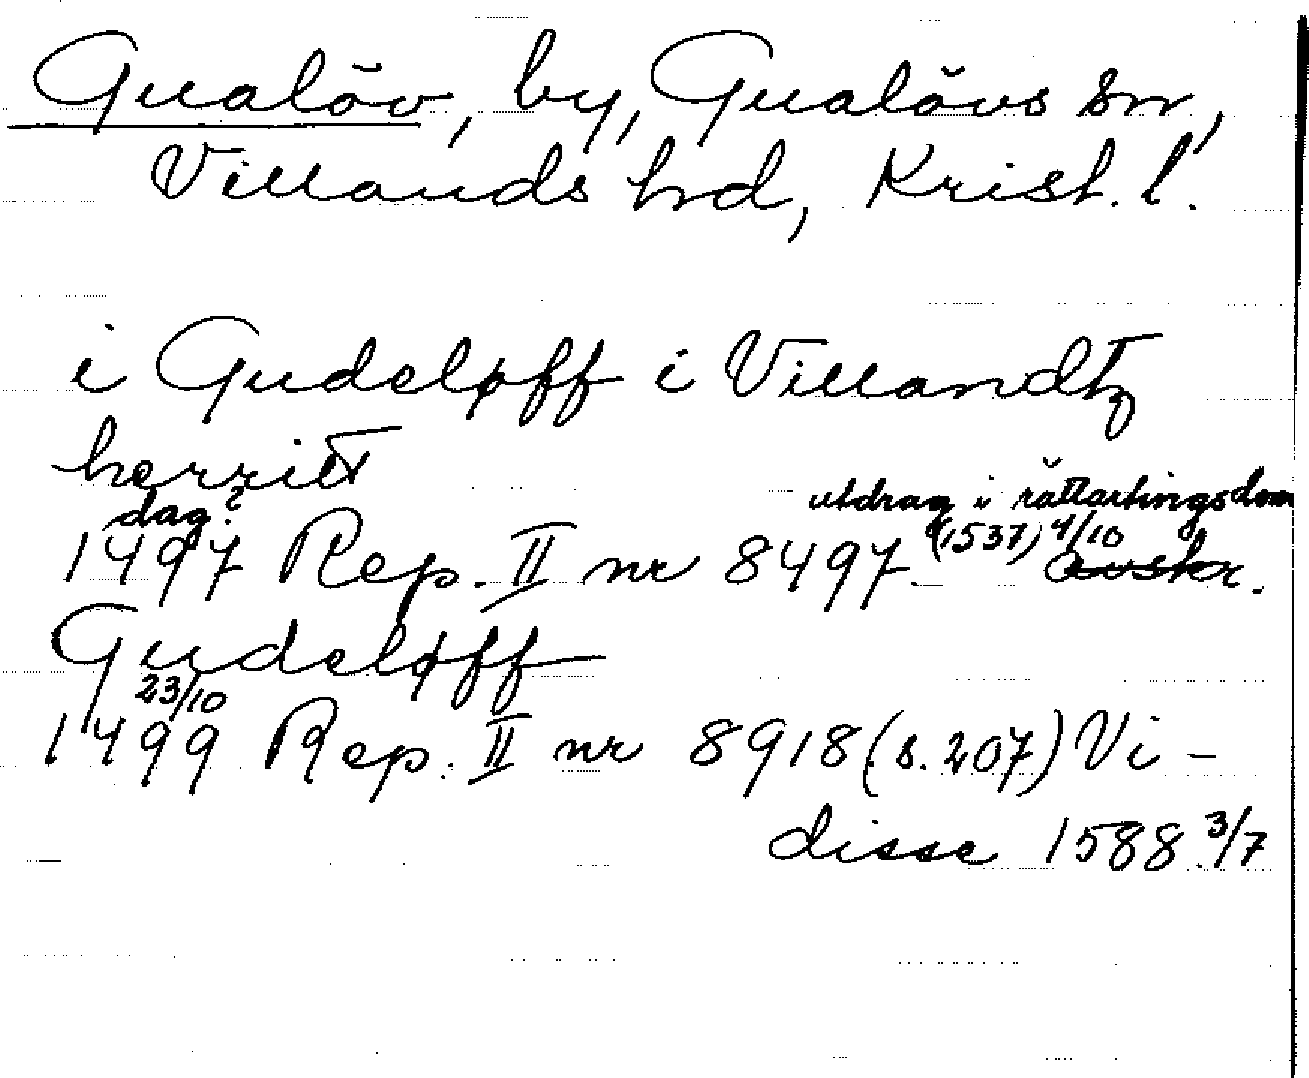 Gualöv, by, Gualövs sn,
Villands hd, Krist. l.
i Gudeløff i Villandtz
herritt
dag? utdrag i rättartingsdom
1497 Rep. II nr 8497 (1537) 4/10 avskr.
Gudeløff
23/10
1499 Rep. II nr 8918 (s. 207) Vi-
disse 1588 3/7